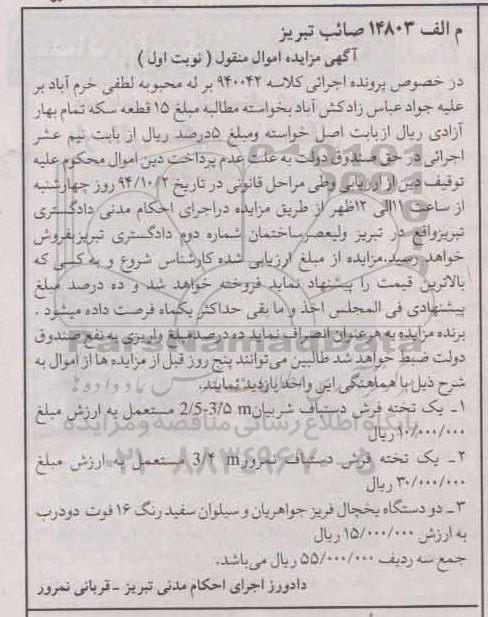 م الف ۱۴۸۰۳ صائب تبریز
آگهی مزایده اموال منقول ( نوبت اول )
در خصوص پرونده اجرائی کلاسه ۹۴۰۰۴۲ بر له محبوبه لطفی خرم آباد بر
علیه جواد عباس زادکش آباد بخواسته مطالبه مبلغ ۱۵ قطعه سکه تمام بهار
آزادی ریال ازبابت اصل خواسته ومبلغ ۵درصد ریال از بابت نیم عشر
اجرائی در حق صندوق دولت به علت عدم پرداخت دین اموال محکوم علیه
توقیف دین از ارزیابی وطی مراحل قانونی در تاریخ ۹۴/۱۰/۲ روز چهارشنبه
از ساعت ۱۱الی ۱۲ظهر از طریق مزایده دراجرای احکام مدنی دادگستری
تبریزواقع در تبریز ولیعصرساختمان شماره دوم دادگستری تبریزبفروش
خواهد رسید.مزایده از مبلغ ارزیابی شده کارشناس شروع و به کسی که
بالاترین قیمت را پیشنهاد نماید فروخته خواهد شد و ده درصد مبلغ
پیشنهادی فی المجلس اخذ و ما بقی حداکثر یکماه فرصت داده میشود .
برنده مزایده به هر عنوان انصراف نماید ده درصد مبلغ واریزی به نفع صندوق
دولت ضبط خواهد شد طالبین می‌توانند پنج روز قبل از مزایده ها از اموال به
شرح ذیل با هماهنگی این واحد بازدید نمایند.
۱ـ یک تخته فرش دستباف شربیان2/5-3/5 m مستعمل به ارزش مبلغ
۱۰/۰۰۰/۰۰۰ ریال
۲ـ یک تخته فرش دستباف نمرور3/4 m مستعمل به ارزش مبلغ
۳۰/۰۰۰/۰۰۰ ریال
۳ـ دو دستگاه یخچال فریز جواهریان و سیلوان سفید رنگ ۱۶ فوت دودرب
به ارزش ۱۵/۰۰۰/۰۰۰ ریال
جمع سه ردیف ۵۵/۰۰۰/۰۰۰ ریال می‌باشد.
دادورز اجرای احکام مدنی تبریز ـ قربانی نمرور
ParsNamadData
پایگاه اطلاع رسانی مناقصه و مزایده
۰۲۱-۸۸۳۴۹۶۷۰-۵